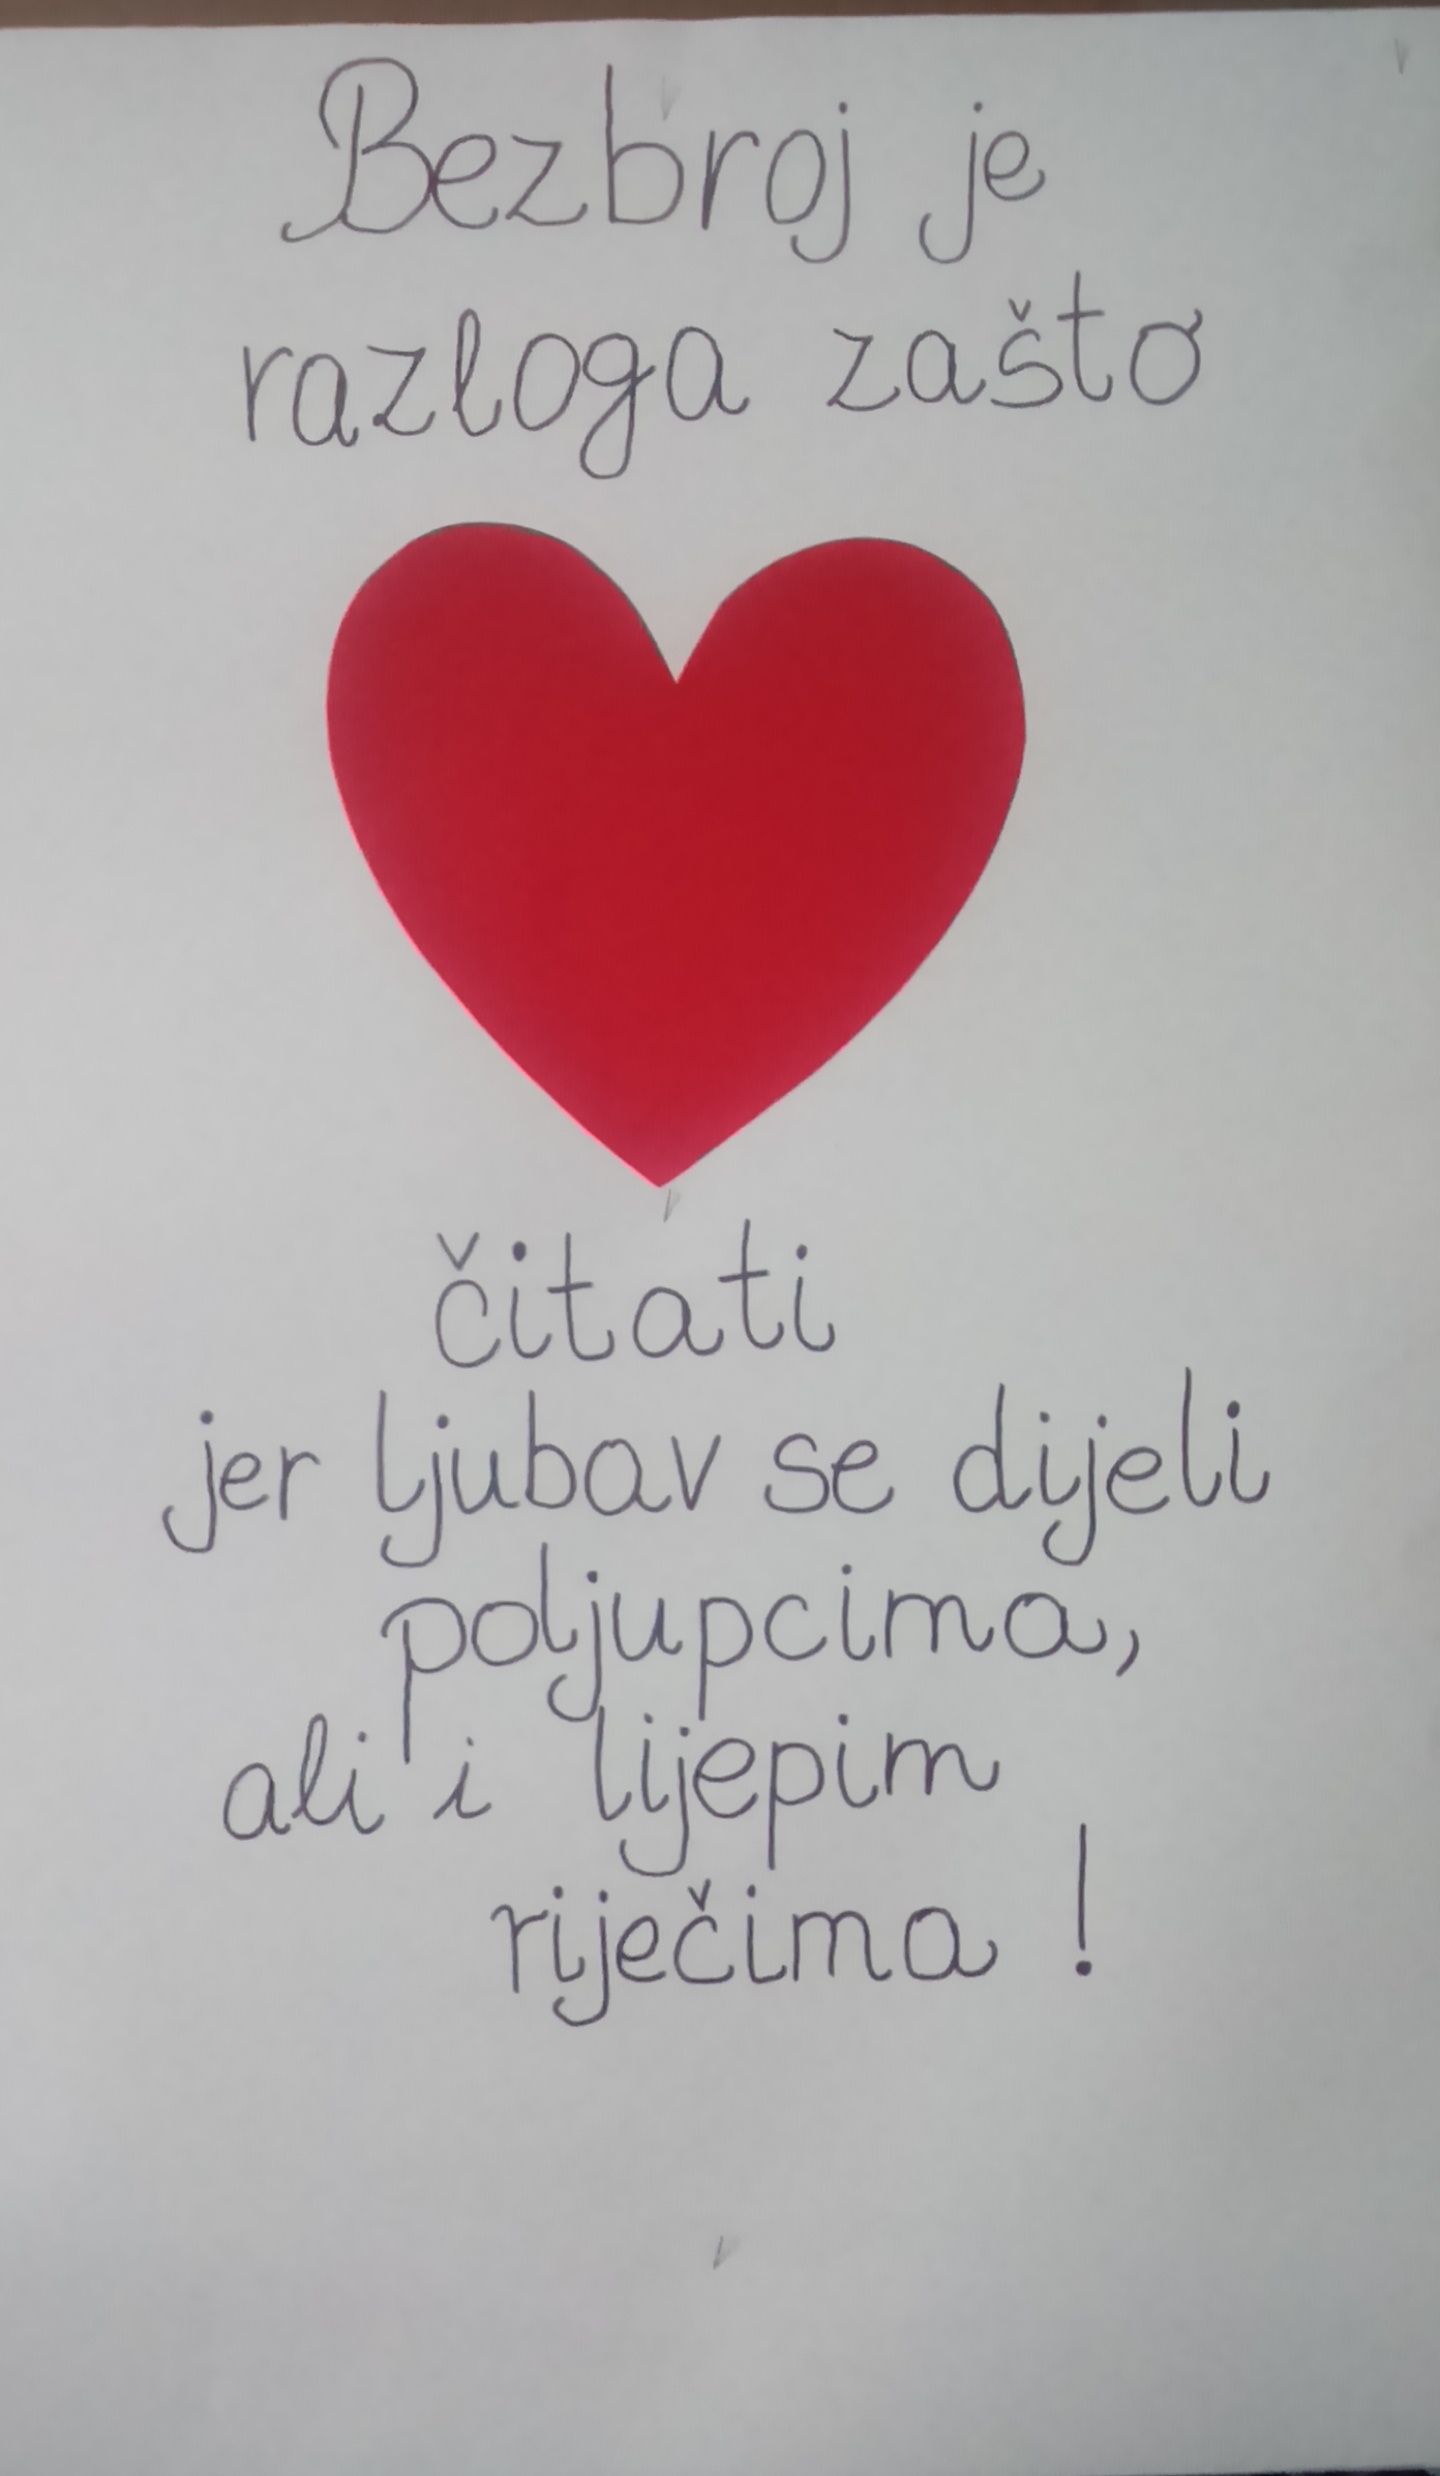 Bezbroj je
razloga zašto
čitati
jer ljubav se dijeli
poljupcima,
ali i lijepim
riječima !